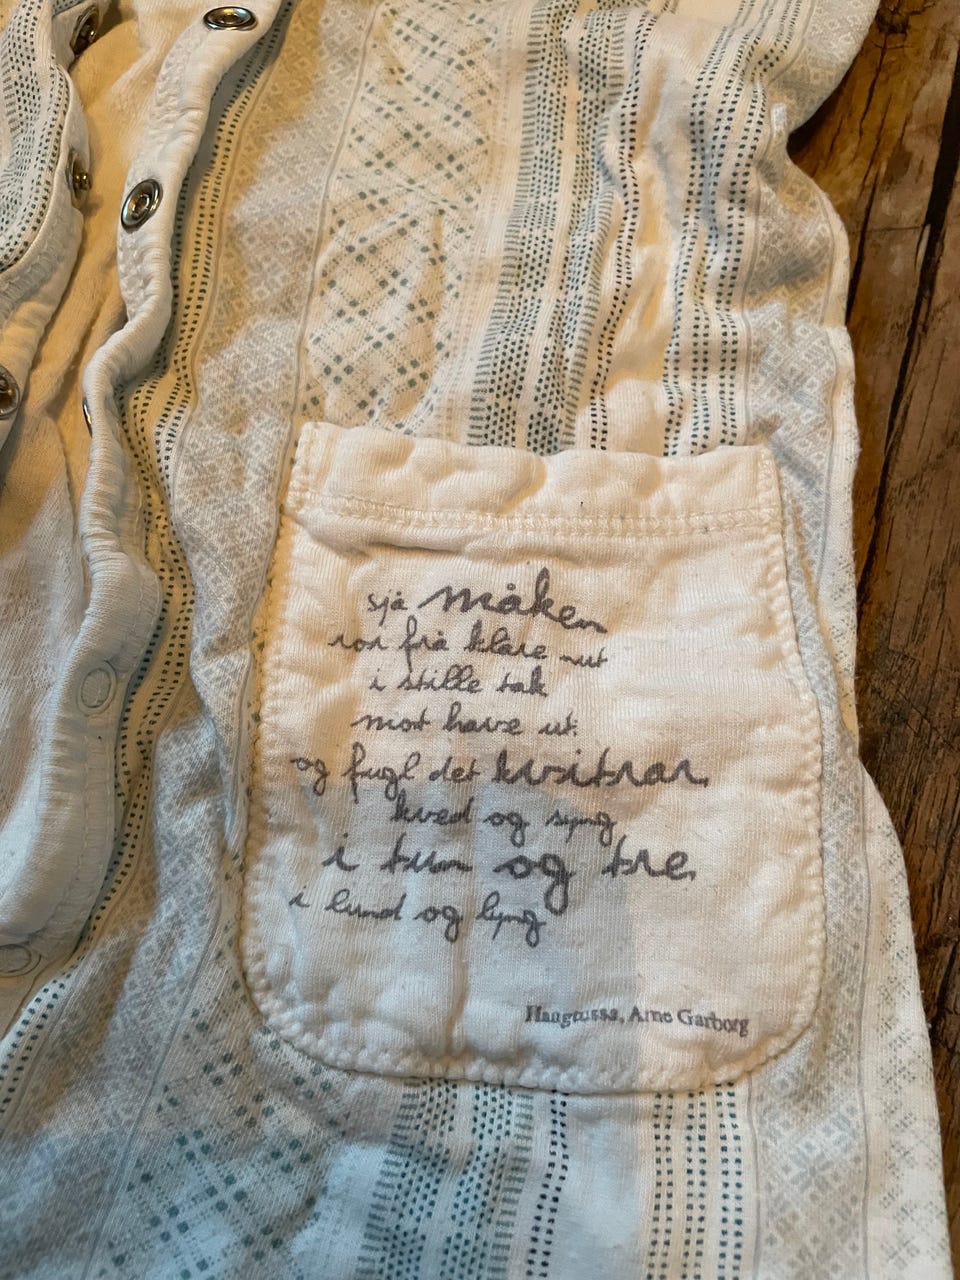 sjå måken
ror frå klåre nut
i stille tak
mot havet ut:
og fugl det kvitrar,
kved og syng
i tun og tre,
i lund og lyng
Haugtussa, Arne Garborg